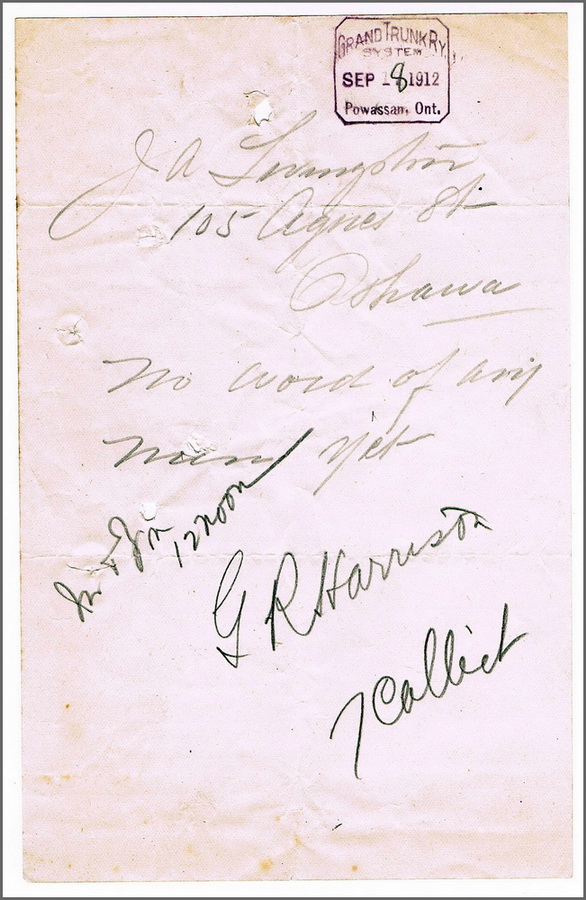 GRAND TRUNK RY.
SYSTEM
SEP 18 1912
Powassan, Ont.
J A Livingston
105 Agnes St
Oshawa
No word of any
yet
12 noon
G R Harrison
7 Collect